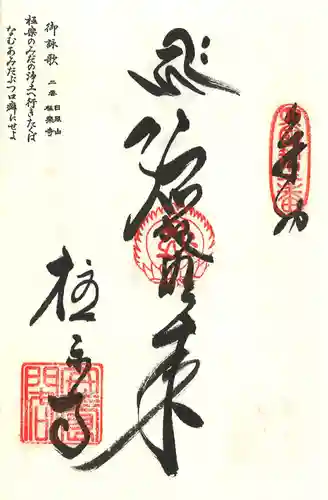 奉拝
阿弥陀如来
極楽寺
御詠歌
二番 日照山 極楽寺
極楽のみだの浄土へ行きたくば
なむあみだぶつ口癖にせよ